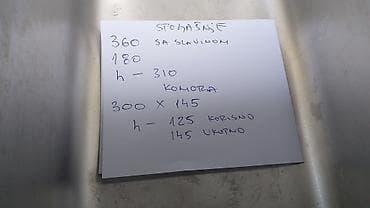 STOJAŠNJE
360 SA SLAVINOM
180
h - 310
KOMORA
300 X 145
h - 125 KORISNO
145 UKUPNO